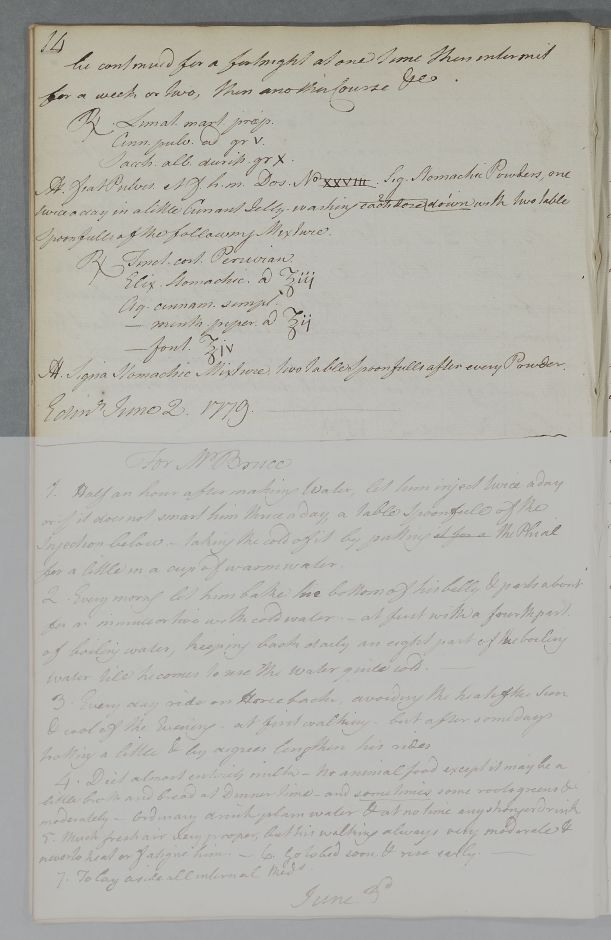 14
be continued for a fortnight at one time then intermit
for a week or two, then another Course &c.
℞ Limat. mart. prep.
Cinn. pulv. ad gr V.
Sacch. alb. duriss. gr X.
M. fiat Pulvis et f. h. m. Dos. No XXVIII. Sig. Stomachic Powders, one
twice a day in a little Currant Jelly. washing each dose down with two table
Spoonfulls of the following Mixture.
℞ Tinct. cort. Peruvian.
Elix. Stomachic. a ℥iij
Aq. cinnam. simpl.
— menth. piper. a ℥ij
— font. ℥iv
M. Signa Stomachic Mixture, two table Spoonfulls after every Powder.
Edinr June 2. 1779.
For Mr Bruce
1. Half an hour after making Water, let him inject twice a day
or if it does not smart him thrice a day, a table Spoonfull of the
Injection below — taking the cold of it by putting the Phial
for a little in a cup of warm water.
2. Every morng let him bathe the bottom of his belly & parts about
for a minute or two with cold water — at first with a fourth part
of boiling water, keeping back daily an eight part of the boiling
water till he comes to use the water quite cold. —
3. Every day ride on Horseback, avoiding the heat of the Sun
& cool of the Evening. at first walking. but after some days
trotting a little & by degrees lengthen his rides
4. Diet almost entirely milk — No animal food except it may be a
little broth and bread at Dinner time — and sometimes some roots greens &
moderately — Ordinary drink plain water & at no time any stronger drink
5. Much fresh air very propper, but his walking always very moderate &
never to heat or fatigue him. — 6. Go to bed soon & rise early. —
7. To lay aside all internal Meds
June 3d